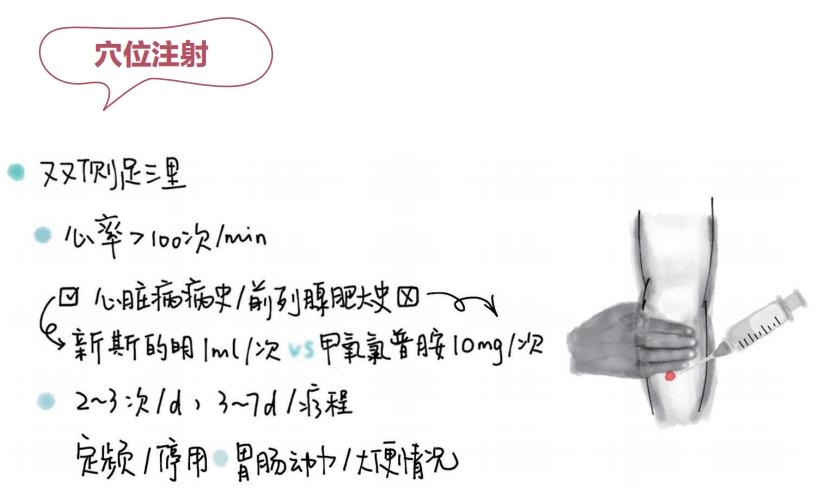 穴位注射
双侧足三里
心率>100次/min
☑ 心脏病病史/前列腺肥大史 ☒
新斯的明1ml/次 vs 甲氧氯普胺10mg/次
2~3次/d，3~7d/疗程
定频/停用 胃肠动力/大便情况